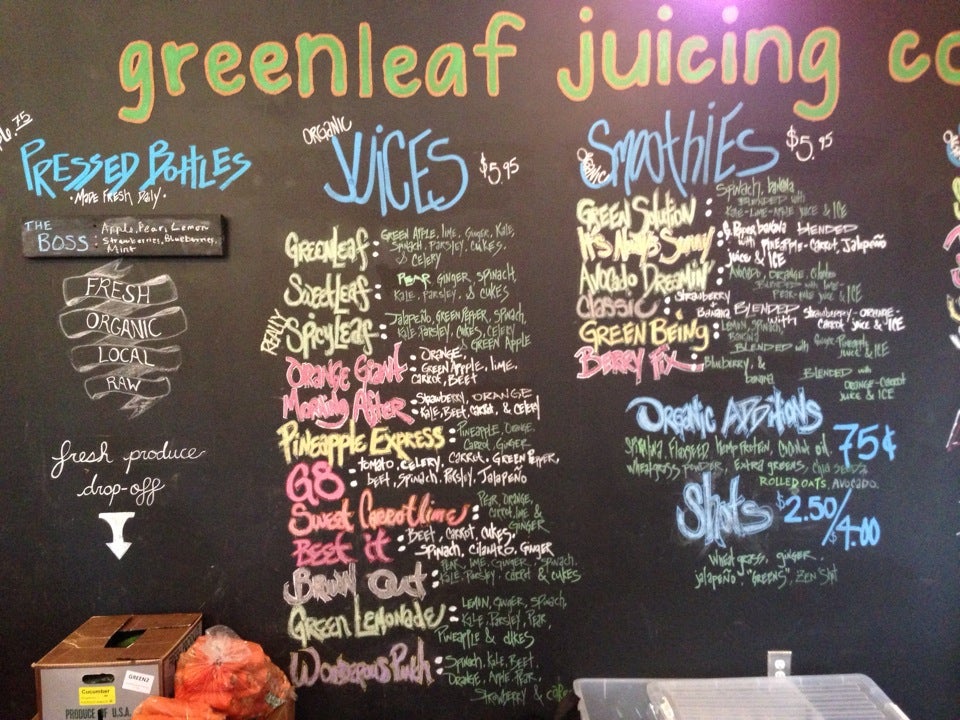 greenleaf juicing co
6.75
PRESSED BOTTLES
• MADE FRESH DAILY •
THE BOSS: Apple, Pear, Lemon
Strawberries, Blueberries,
Mint
FRESH
ORGANIC
LOCAL
RAW
fresh produce
drop-off
Cucumber
PRODUCE OF U.S.A.
GREENZ
ORGANIC JUICES $5.95
GREENLEAF: GREEN APPLE, lime, GINGER, KALE,
SPINACH, PARSLEY, CUKES,
& CELERY
SWEETLEAF: PEAR, GINGER, SPINACH,
KALE, PARSLEY, & CUKES
REALLY SPICYLEAF: JALAPEÑO, GREEN PEPPER, SPINACH,
KALE, PARSLEY, CUKES, CELERY
& GREEN APPLE
ORANGE GRANT: ORANGE,
GREEN APPLE, LIME,
CARROT, BEET
MORNING AFTER: STRAWBERRY, ORANGE
KALE, BEET, CARROT, & CELERY
PINEAPPLE EXPRESS: PINEAPPLE, ORANGE,
CARROT, GINGER
G8: TOMATO, CELERY, CARROT, GREEN PEPPER,
BEET, SPINACH, PARSLEY, JALAPEÑO
SWEET CARROTLIME: PEAR, ORANGE,
CARROT, LIME &
GINGER
BEET IT: BEET, CARROT, CUKES,
SPINACH, CILANTRO, GINGER
BRUIN OUT: PEAR, LIME, GINGER, SPINACH,
KALE, PARSLEY, CARROT & CUKES
GREEN LEMONADE: LEMON, GINGER, SPINACH,
KALE, PARSLEY, PEAR,
PINEAPPLE & CUKES
WONDEROUS PUNCH: SPINACH, KALE, BEET,
ORANGE, APPLE, PEAR,
STRAWBERRY &
ORGANIC SMOOTHIES $5.95
GREEN SOLUTION: SPINACH, BANANA
BLENDED WITH
KALE-LIME-APPLE JUICE & ICE
IT'S ALWAYS SUNNY: G. PEPPER, BANANA BLENDED
WITH PINEAPPLE-CARROT, JALAPEÑO
JUICE & ICE
AVOCADO DREAMIN': AVOCADO, ORANGE, CILANTRO
BLENDED WITH LIME-
PEAR-KALE JUICE & ICE
CLASSIC: STRAWBERRY
BANANA BLENDED WITH STRAWBERRY-ORANGE-
CARROT JUICE & ICE
GREEN BEING: LEMON, SPINACH,
BANANA
BLENDED WITH GINGER-PINEAPPLE
JUICE & ICE
BERRY FIX: BLUEBERRY, &
BANANA BLENDED WITH
ORANGE-CARROT
JUICE & ICE
ORGANIC ADDITIONS 75¢
SPIRULINA, FLAXSEED, HEMP PROTEIN, COCONUT OIL,
WHEATGRASS POWDER, EXTRA GREENS, CHIA SEEDS
ROLLED OATS, AVOCADO.
SHOTS $2.50/$4.00
WHEATGRASS, GINGER,
JALAPEÑO "GREENS", ZEN SHOT